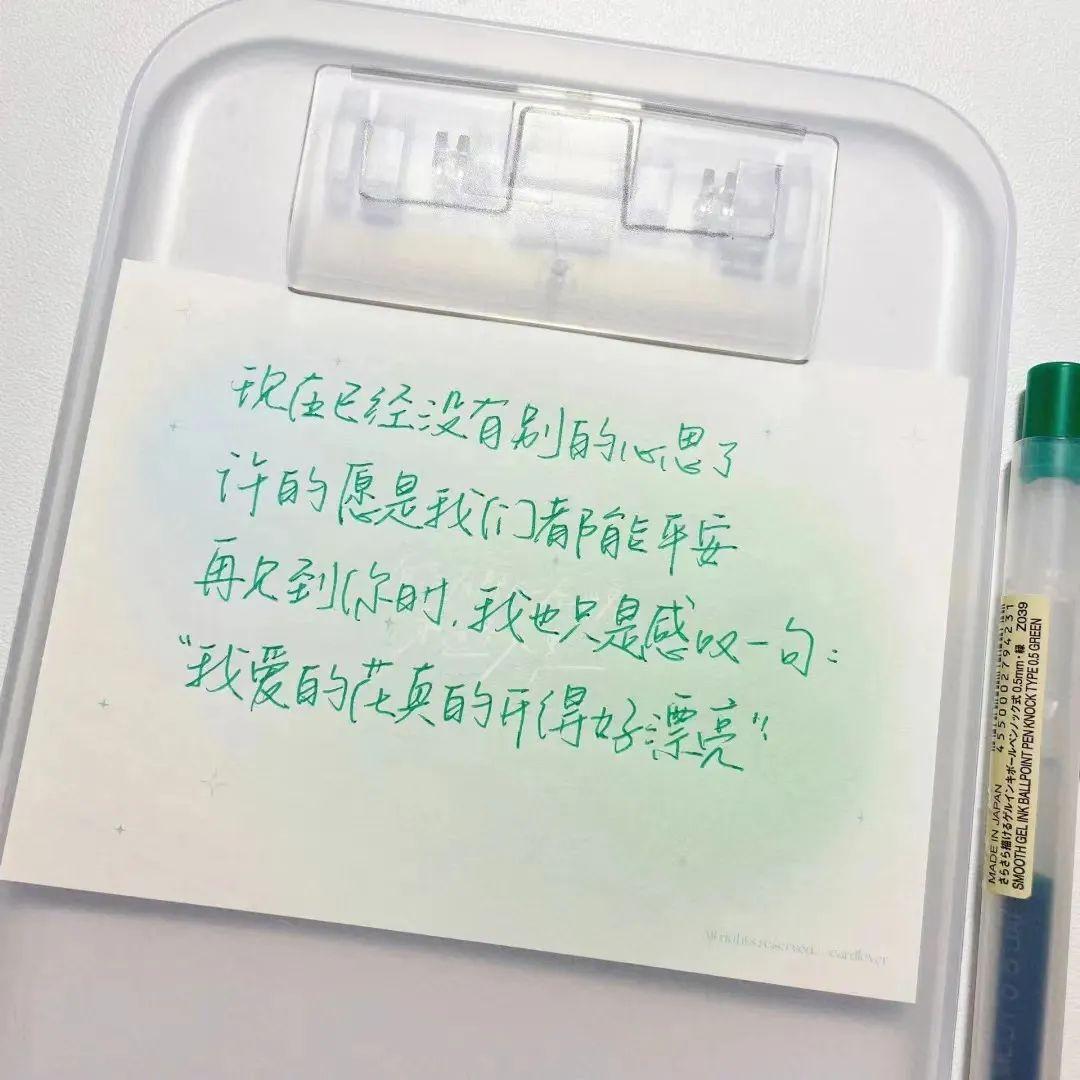 现在已经没有别的心思了
许的愿是我们都能平安
再见到你时,我也只是感叹一句:
“我爱的花真的开得好漂亮”
All rights reserved. cardlover
MADE IN JAPAN 4550002794231
さらさら描けるゲルインキボールペンノック式 0.5mm・緑 Z039
SMOOTH GEL INK BALLPOINT PEN KNOCK TYPE 0.5 GREEN